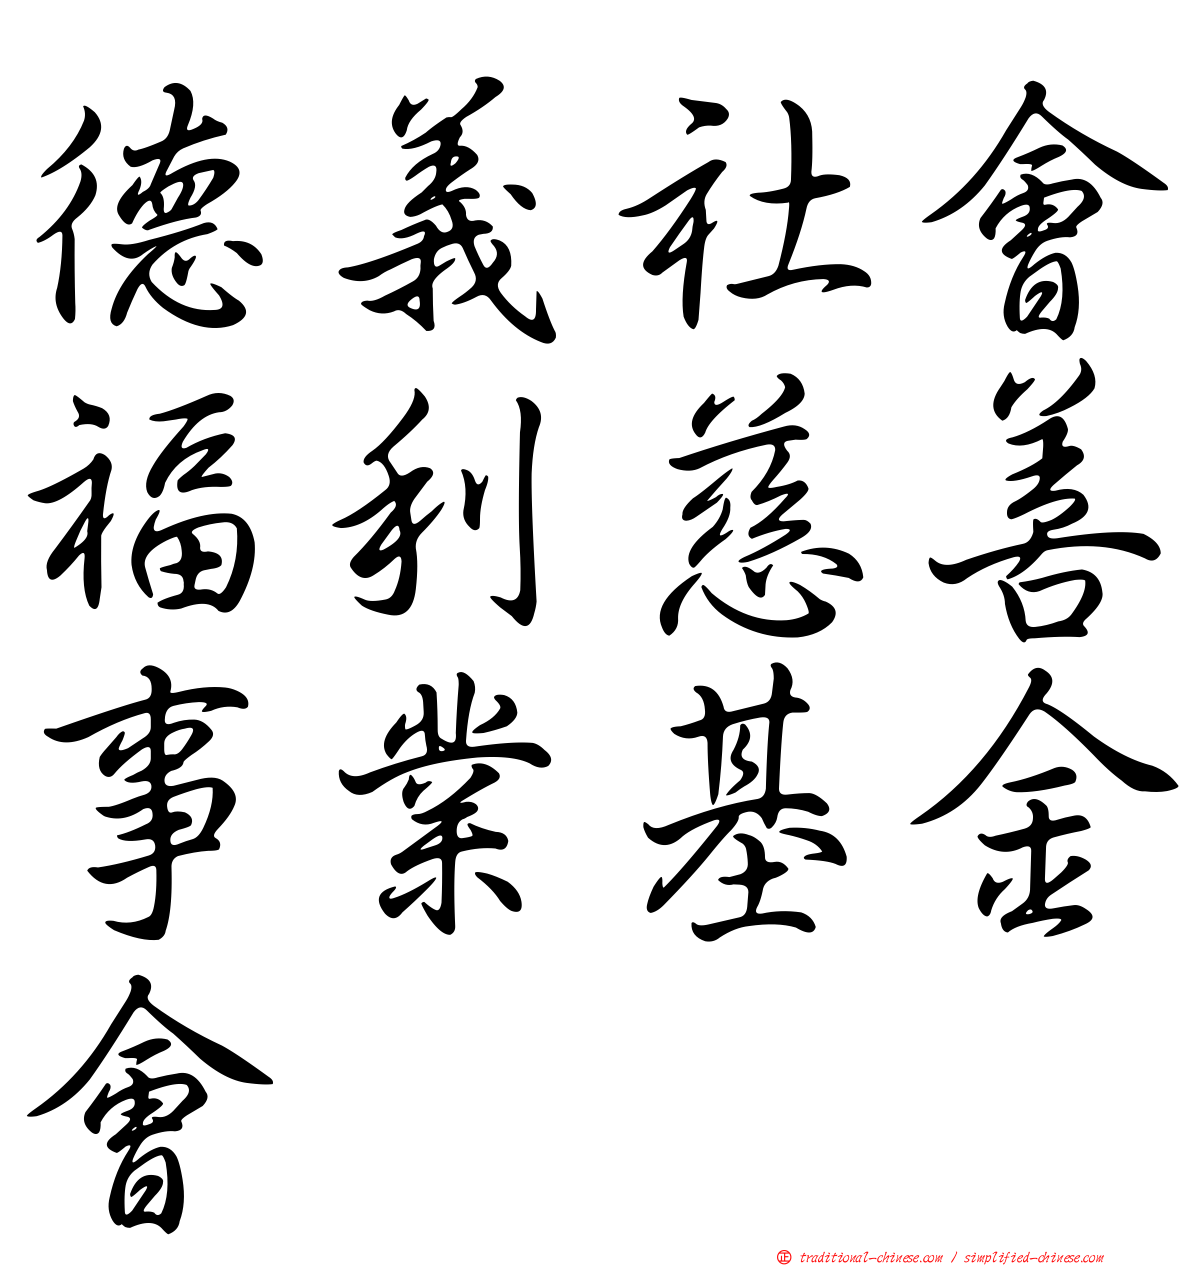 德義社會
福利慈善
事業基金
會
㊣ traditional-chinese.com / simplified-chinese.com